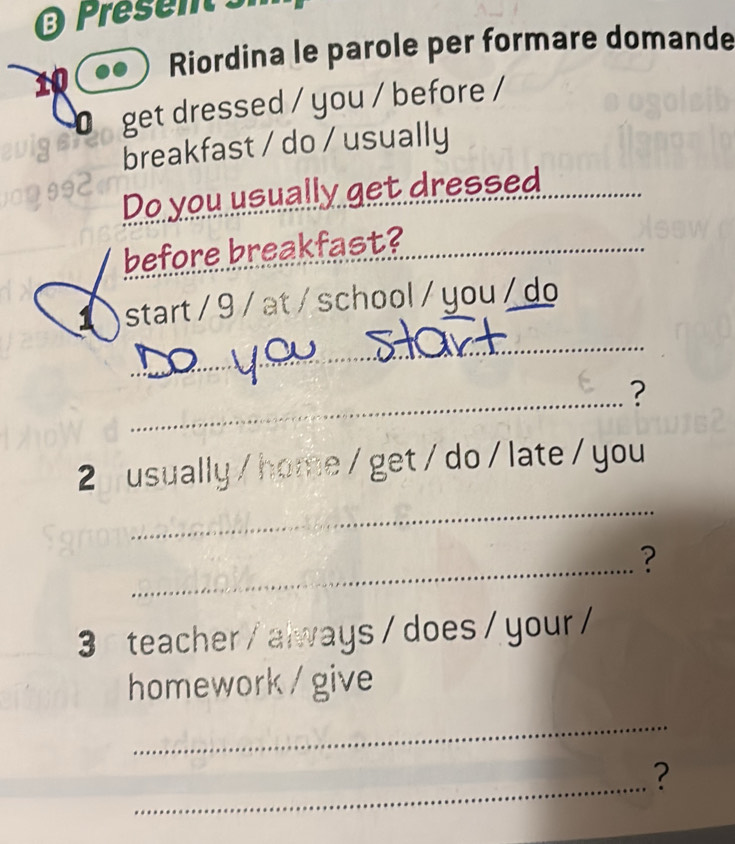 B Present
10 Riordina le parole per formare domande
0 get dressed / you / before /
breakfast / do / usually
Do you usually get dressed
before breakfast?
1 start / 9 / at / school / you / do
Do you start
?
2 usually / home / get / do / late / you
?
3 teacher / always / does / your /
homework / give
?